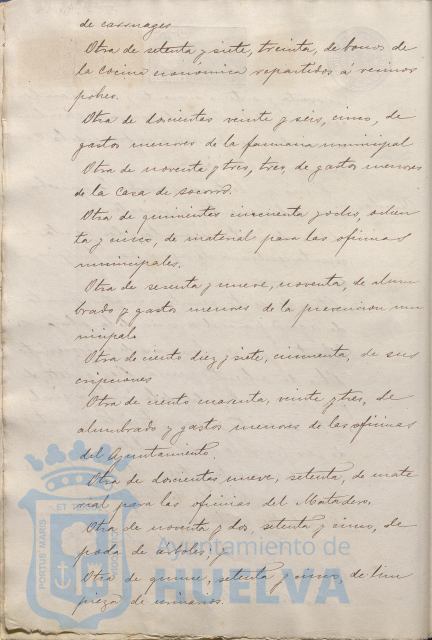 de carruages
Otra de setenta y siete, treinta, de bonos de
la cocina económica repartidos á vecinos
pobres.
Otra de doscientas veinte y seis, cinco, de
gastos menores de la farmacia municipal
Otra de noventa y tres, tres, de gastos menores
de la Casa de socorro.
Otra de quinientas cincuenta y ocho, ochen
ta y cinco, de material para las oficinas
municipales.
Otra de sesenta y nueve, noventa, de alum
brado y gastos menores de la prevencion mu
nicipal
Otra de ciento diez y siete, cincuenta, de sus
cripciones
Otra de ciento cuarenta, veinte y tres, de
alumbrado y gastos menores de las oficinas
del Ayuntamiento.
Otra de doscientas nueve, setenta, de mate
rial para las oficinas del Matadero.
Otra de noventa y dos, setenta y cinco, de
poda de árboles; y
Otra de quince, setenta y cinco, de lim
pieza de urinarios.
Ayuntamiento de
HUELVA
PORTUS MARIS
ET